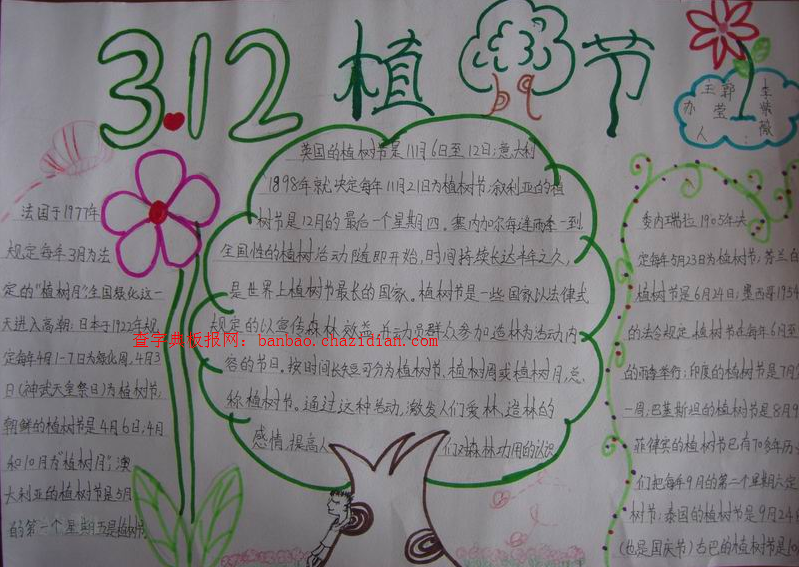 3.12 植 节
主 郭 李
办 莹 紫
人： 薇
法国于1977年
规定每年3月为法
定的"植树月",全国绿化这一
天进入高潮;日本于1922年规
定每年4月1-7日为绿化周,4月3
日(神武天皇祭日)为植树节,
朝鲜的植树节是4月6日;4月
和10月为"植树月",澳
大利亚的植树节是5月
的第 个星期五是植树节
英国的植树节是11月6日至12日;意大利
1898年就决定每年11月21日为植树节;叙利亚的植
树节是12月的最后一个星期四。塞内加尔每逢雨季一到
全国性的植树活动随即开始,时间持续长达半年之久,
是世界上植树节最长的国家。植树节是一些国家以法律式
规定的以宣传森林效益,并动员群众参加造林为活动内
容的节日。按时间长短可分为植树节,植树周或植树月,总
称植树节。通过这种活动,激发人们爱林、造林的
感情,提高人们对森林功用的认识
委内瑞拉1905年决
定每年5月23日为植树节;芬兰自
植树节是6月24日;墨西哥1954
的法令规定,植树节在每年6月至
的雨季举行;印度的植树节是7月
一周;巴基斯坦的植树节是8月9
菲律宾的植树节已有70多年历
们把每年9月的第二个星期六定
树节;泰国的植树节是9月24
(也是国庆节)古巴的植树节是10
查字典板报网：banbao.chazidian.com